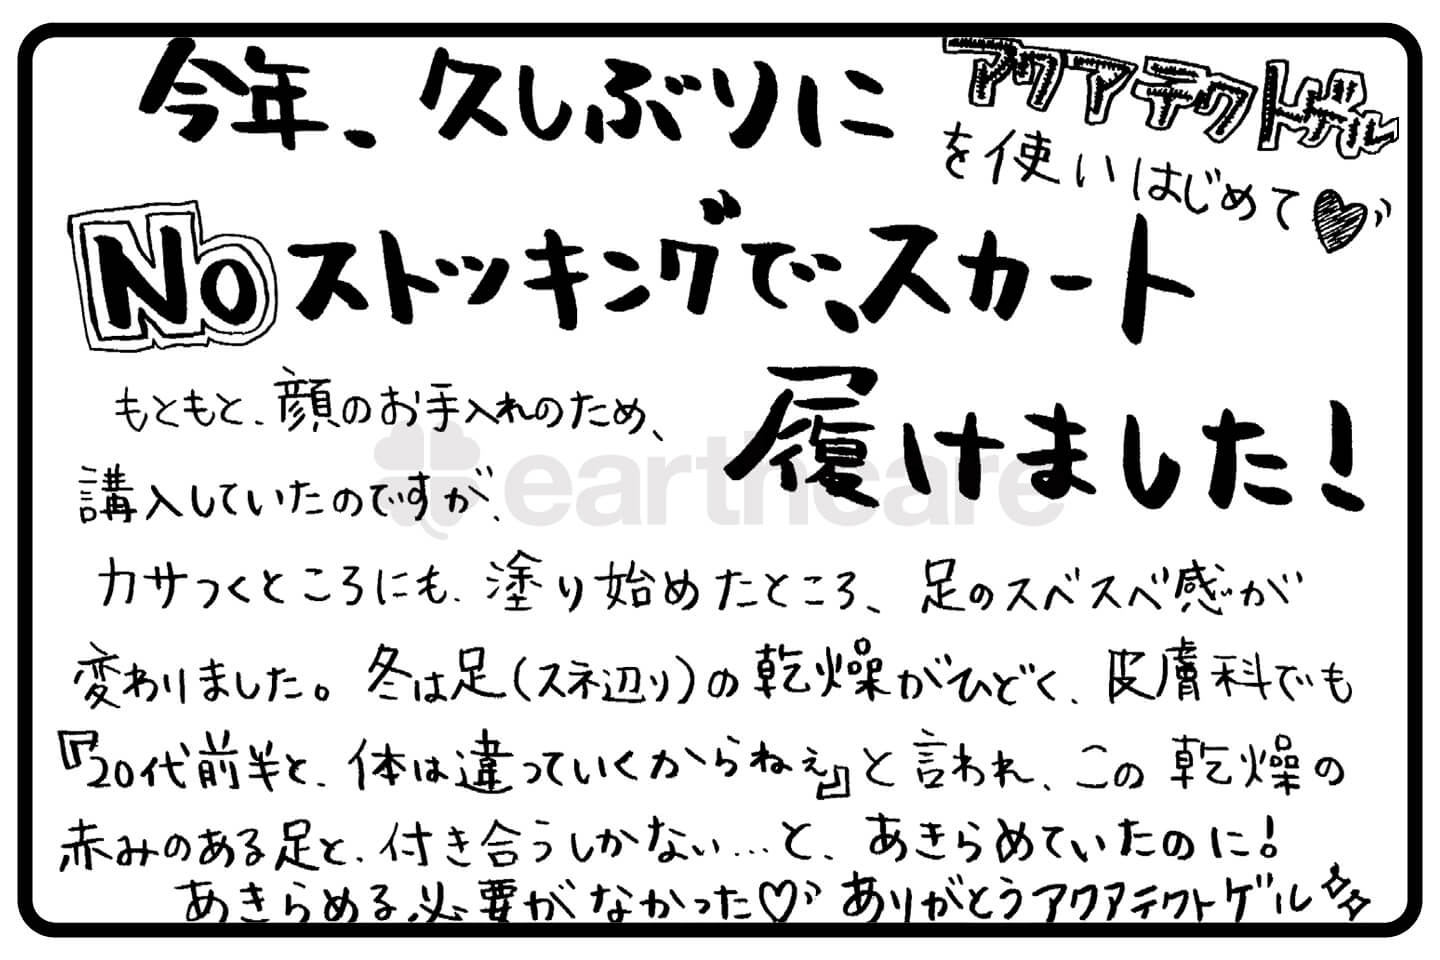 今年、久しぶりに
アクアテクトゲル
を使いはじめて♥
Noストッキングで、スカート
履けました！
もともと、顔のお手入れのため、
講入していたのですが、
カサつくところにも、塗り始めたところ、足のスベスベ感が
変わりました。冬は足(スネ辺り)の乾燥がひどく、皮膚科でも
『20代前半と、体は違っていくからねぇ』と言われ、この乾燥の
赤みのある足と、付き合うしかない…と、あきらめていたのに！
あきらめる必要がなかった♡ ありがとうアクアテクトゲル
earthcare